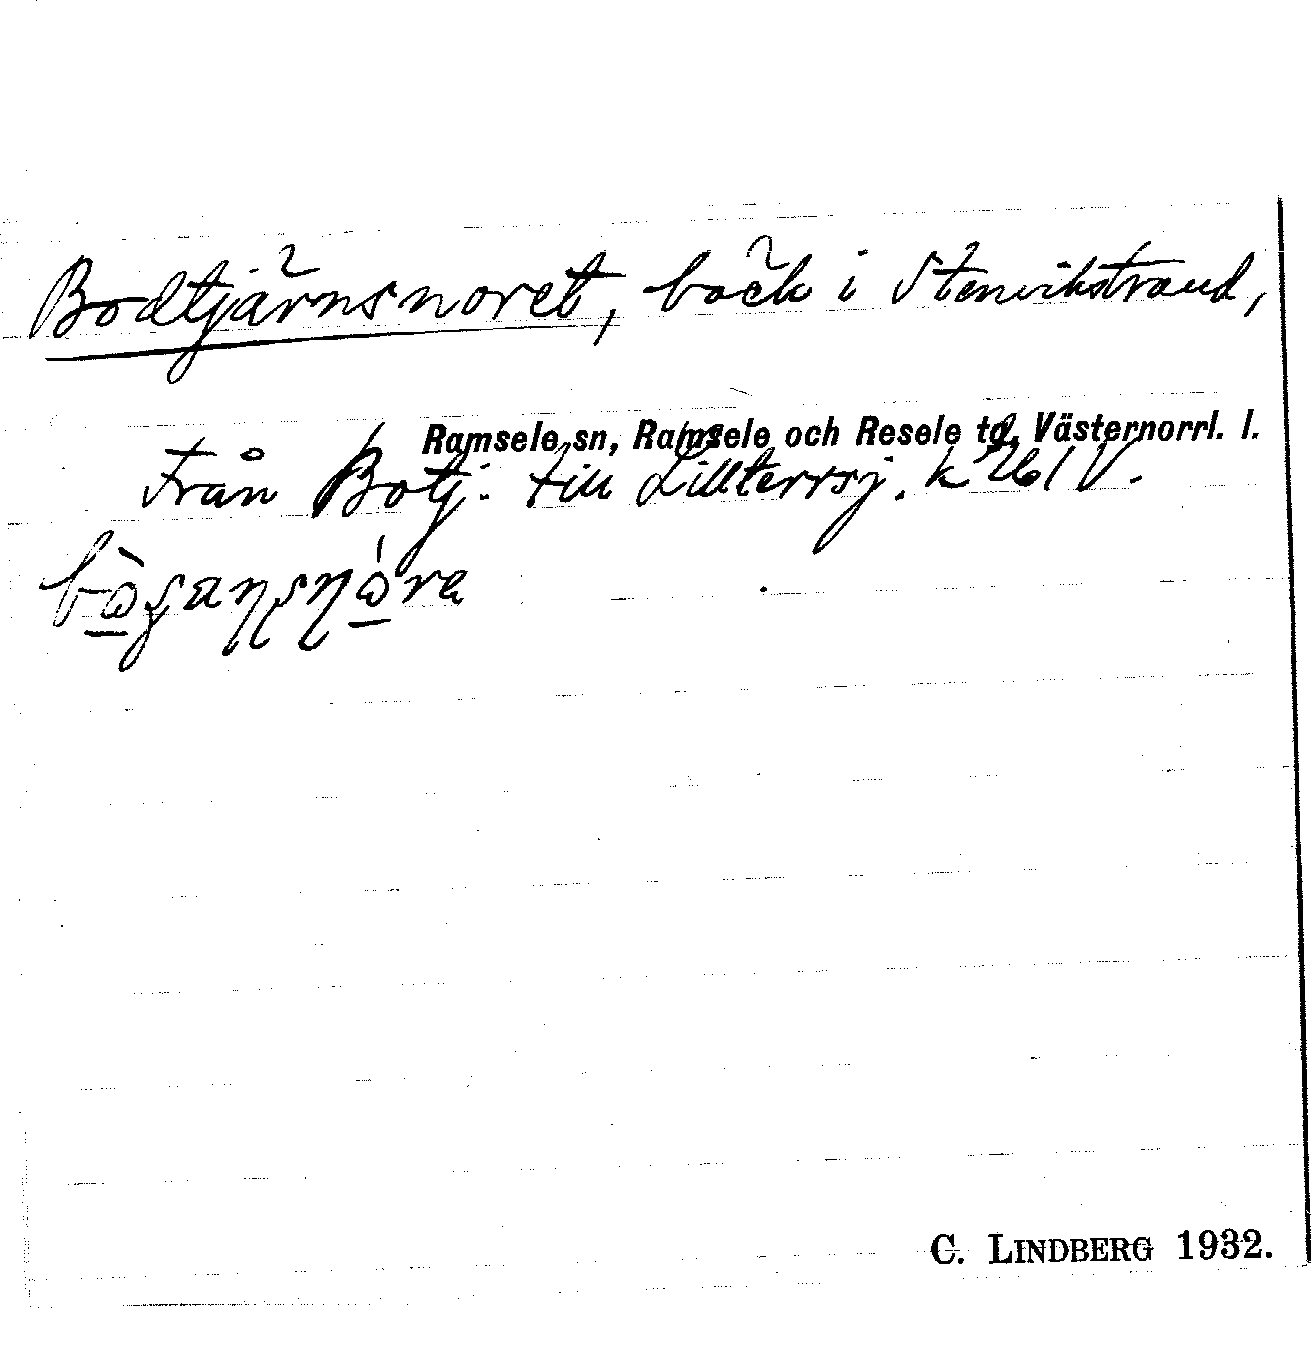 Bodtjärnsnoret, bäck i Stenvikstrand,
Ramsele sn, Ramsele och Resele td, Västernorrl. l.
Från Botj. till Lillterrsj. k 261 V.
C. LINDBERG 1932.